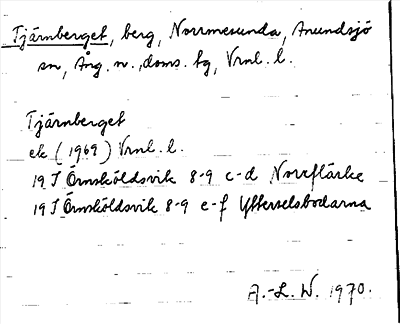 Tjärnberget, berg, Norrmesunda, Anundsjö
sn, Ång. n., doms. tg, Vrnl. l.
Tjärnberget
ek (1969) Vrnl. l.
19 J Örnsköldsvik 8-9 c-d Norrflärke
19 J Örnsköldsvik 8-9 e-f Ytterselsbodarna
A.-L. W. 1970.